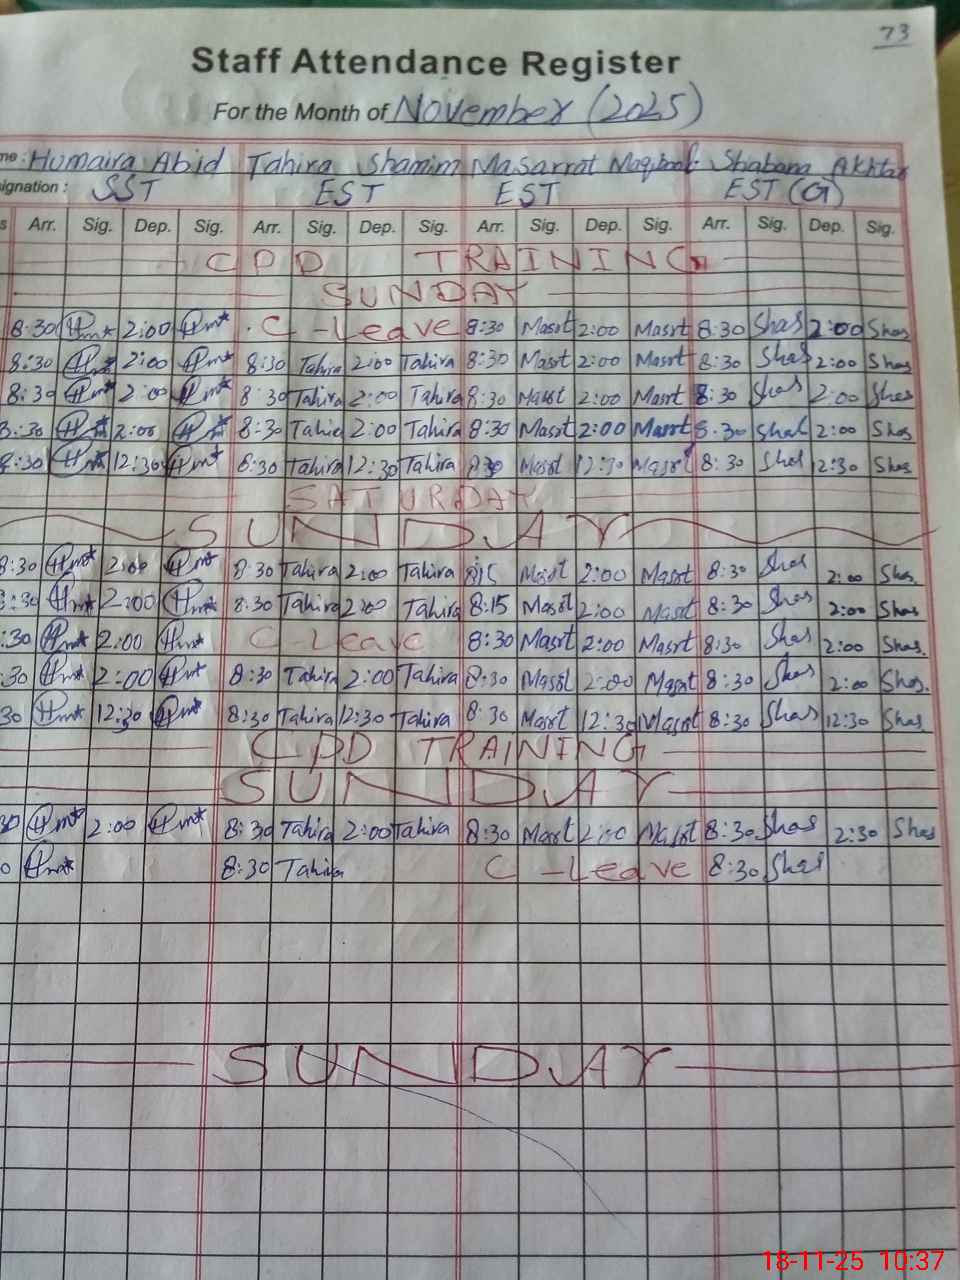 73
Staff Attendance Register
For the Month of November (2025)
me: Humaira Abid Tahira Shamim Masarrat Shabana Akhtar
signation: SST EST EST EST (G)
s Arr. Sig. Dep. Sig. Arr. Sig. Dep. Sig. Arr. Sig. Dep. Sig. Arr. Sig. Dep. Sig.
CPD TRAINING
SUNDAY
8:30 Hmt 2:00 Hmt C-Leave 8:30 Masrt 2:00 Masrt 8:30 Shas 2:00 Shas
8:30 Hmt 2:00 Hmt 8:30 Tahira 2:00 Tahira 8:30 Masrt 2:00 Masrt 8:30 Shas 2:00 Shas
8:30 Hmt 2:00 Hmt 8:30 Tahira 2:00 Tahira 8:30 Masrt 2:00 Masrt 8:30 Shas 2:00 Shas
8:30 Hmt 2:00 Hmt 8:30 Tahira 2:00 Tahira 8:30 Masrt 2:00 Masrt 8:30 Shas 2:00 Shas
8:30 Hmt 12:30 Hmt 8:30 Tahira 12:30 Tahira 8:30 Masrt 12:30 Masrt 8:30 Shas 12:30 Shas
SATURDAY
SUNDAY
8:30 Hmt 2:00 Hmt 8:30 Tahira 2:00 Tahira 8:15 Masrt 2:00 Masrt 8:30 Shas 2:00 Shas.
:30 Hmt 2:00 Hmt 8:30 Tahira 2:00 Tahira 8:15 Masrt 2:00 Masrt 8:30 Shas 2:00 Shas.
:30 Hmt 2:00 Hmt C-Leave 8:30 Masrt 2:00 Masrt 8:30 Shas 2:00 Shas.
:30 Hmt 2:00 Hmt 8:30 Tahira 2:00 Tahira 8:30 Masrt 2:00 Masrt 8:30 Shas 2:00 Shas.
30 Hmt 12:30 Hmt 8:30 Tahira 12:30 Tahira 8:30 Masrt 12:30 Masrt 8:30 Shas 12:30 Shas.
CPD TRAINING
SUNDAY
30 Hmt 2:00 Hmt 8:30 Tahira 2:00 Tahira 8:30 Masrt 2:00 Masrt 8:30 Shas 2:30 Shas
0 Hmt 8:30 Tahira C-Leave 8:30 Shas
SUNDAY
18-11-25 10:37